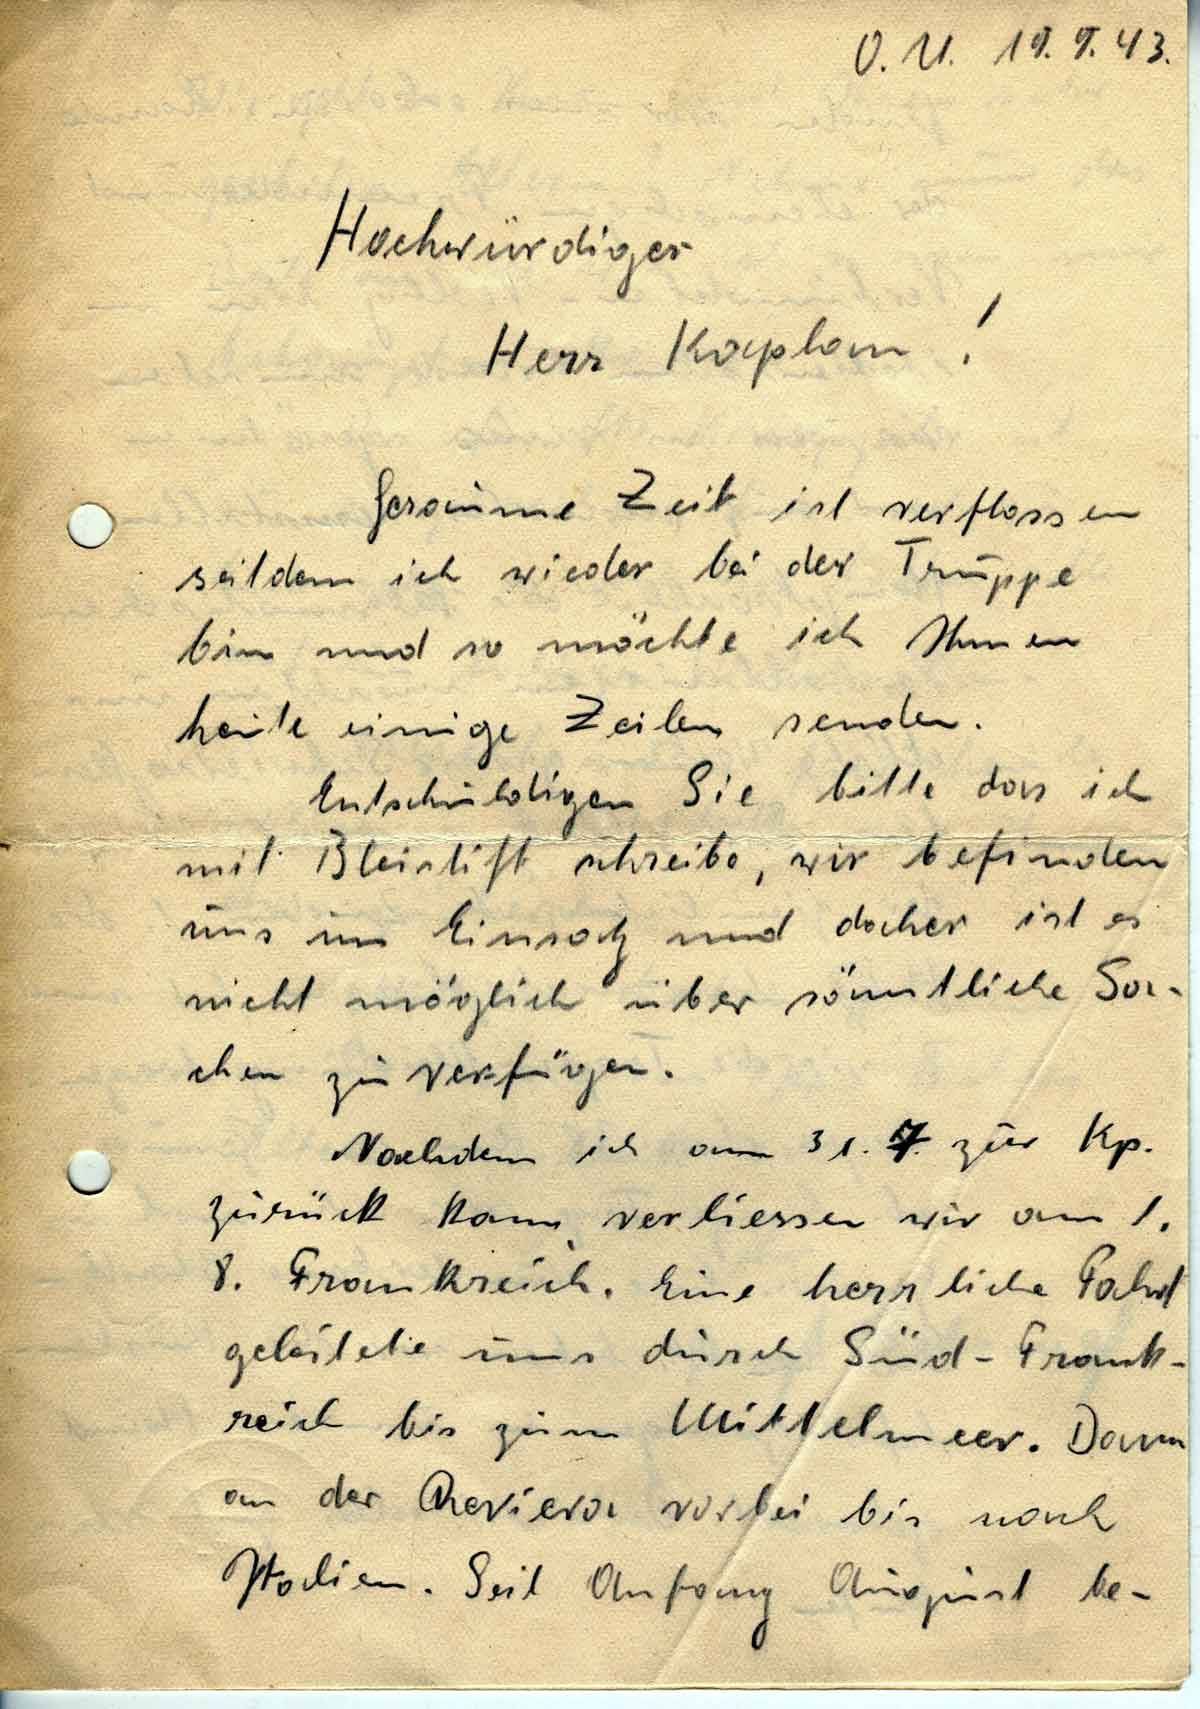 O. U. 19. 9. 43.
Hochwürdiger
Herr Kaplan!
Geraume Zeit ist verflossen
seitdem ich wieder bei der Truppe
bin und so möchte ich Ihnen
heute einige Zeilen senden.
Entschuldigen Sie bitte das ich
mit Bleistift schreibe, wir befinden
uns im Einsatz und daher ist es
nicht möglich über sämtliche Sa-
chen zu verfügen.
Nachdem ich am 31. 7. zur Kp.
zurück kam, verliessen wir am 1.
8. Frankreich. Eine herrliche Fahrt
geleitete uns durch Süd-Frank-
reich bis zum Mittelmeer. Dann
an der Reviera vorbei bis nach
Italien. Seit Anfang August be-